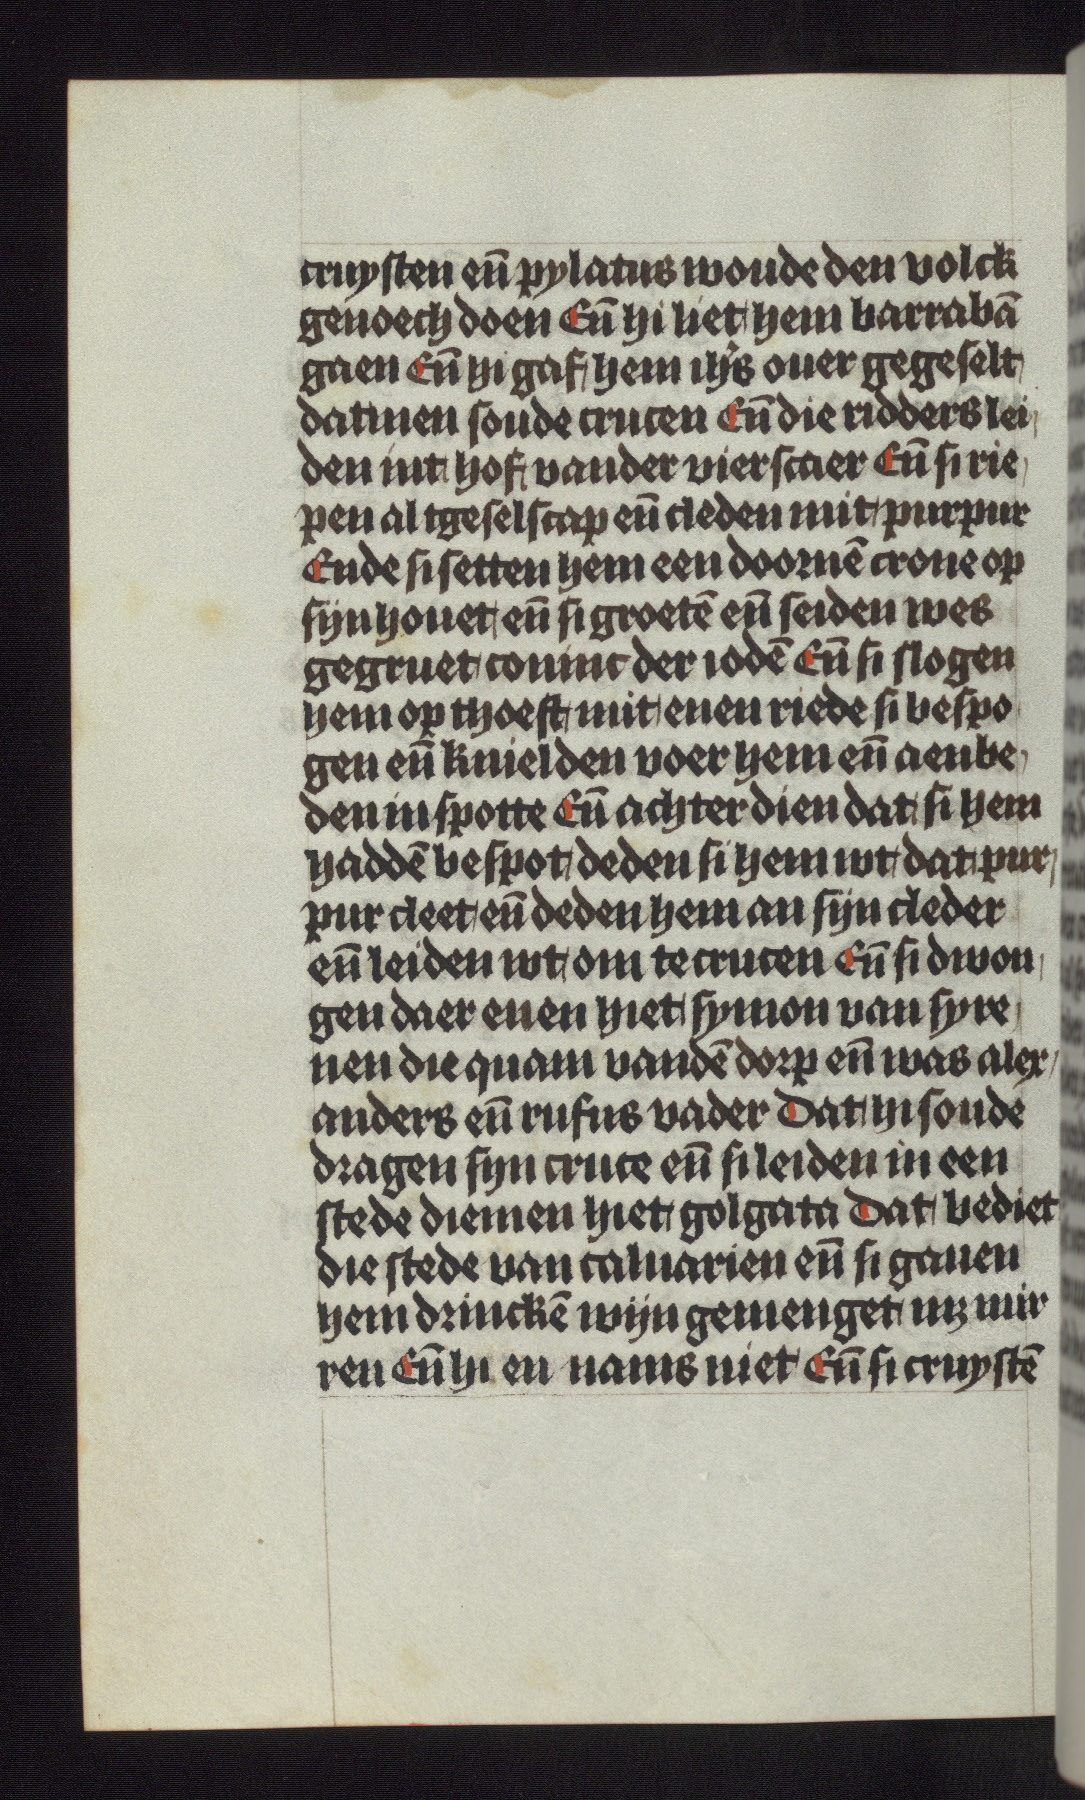 cruysten eñ pylatus woude den volck
genoech doen Eñ hi liet hem barrabā
gaen Eñ hi gaf hem ihs̄ ouer gegeselt
datmen soude crucen Eñ die ridders lei
den int hof vander vierscaer Eñ si rie
pen al tgeselscap eñ cleden mit purpur
Ende si setten hem een doornē crone op
sijn houet eñ si groetē eñ seiden wes
gegruet coninc der iodē Eñ si slogen
hem op thoeft mit enen riede si bespo
gen eñ knielden voer hem eñ aenbe
den in spotte Eñ achter dien dat si hem
haddē bespot deden si hem wt dat pur
pur cleet eñ deden hem an sijn cleder
eñ leiden wt om te crucen Eñ si dwon
gen daer enen hiet symon van syre
nen die quam vandē dorp eñ was alex
anders eñ rufus vader Dat hi soude
dragen sijn cruce eñ si leiden in een
stede diemen hiet golgata Dat bediet
die stede van caluarien eñ si gauen
hem drinckē wijn gemenget mz mir
ren Eñ hi en nams niet Eñ si cruystē